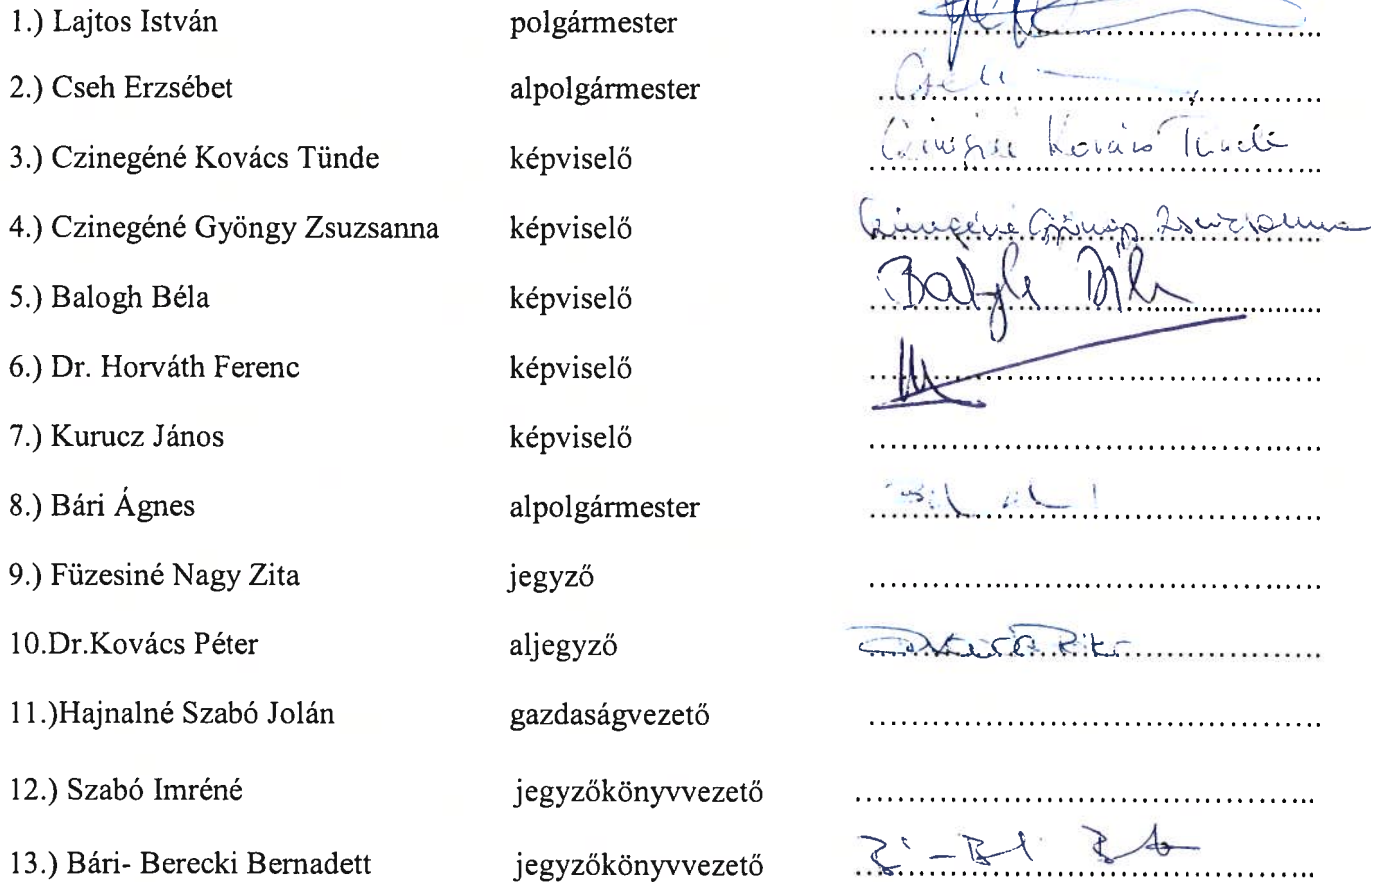 1.) Lajtos István polgármester ..........
2.) Cseh Erzsébet alpolgármester Cseh
3.) Czinegéné Kovács Tünde képviselő Czinegéné Kovács Tünde
4.) Czinegéné Gyöngy Zsuzsanna képviselő Czinegéné Gyöngy Zsuzsanna
5.) Balogh Béla képviselő Balogh Béla
6.) Dr. Horváth Ferenc képviselő ..........
7.) Kurucz János képviselő ..........
8.) Bári Ágnes alpolgármester ..........
9.) Füzesiné Nagy Zita jegyző ..........
10.Dr.Kovács Péter aljegyző ..........
11.)Hajnalné Szabó Jolán gazdaságvezető ..........
12.) Szabó Imréné jegyzőkönyvvezető ..........
13.) Bári- Berecki Bernadett jegyzőkönyvvezető ..........